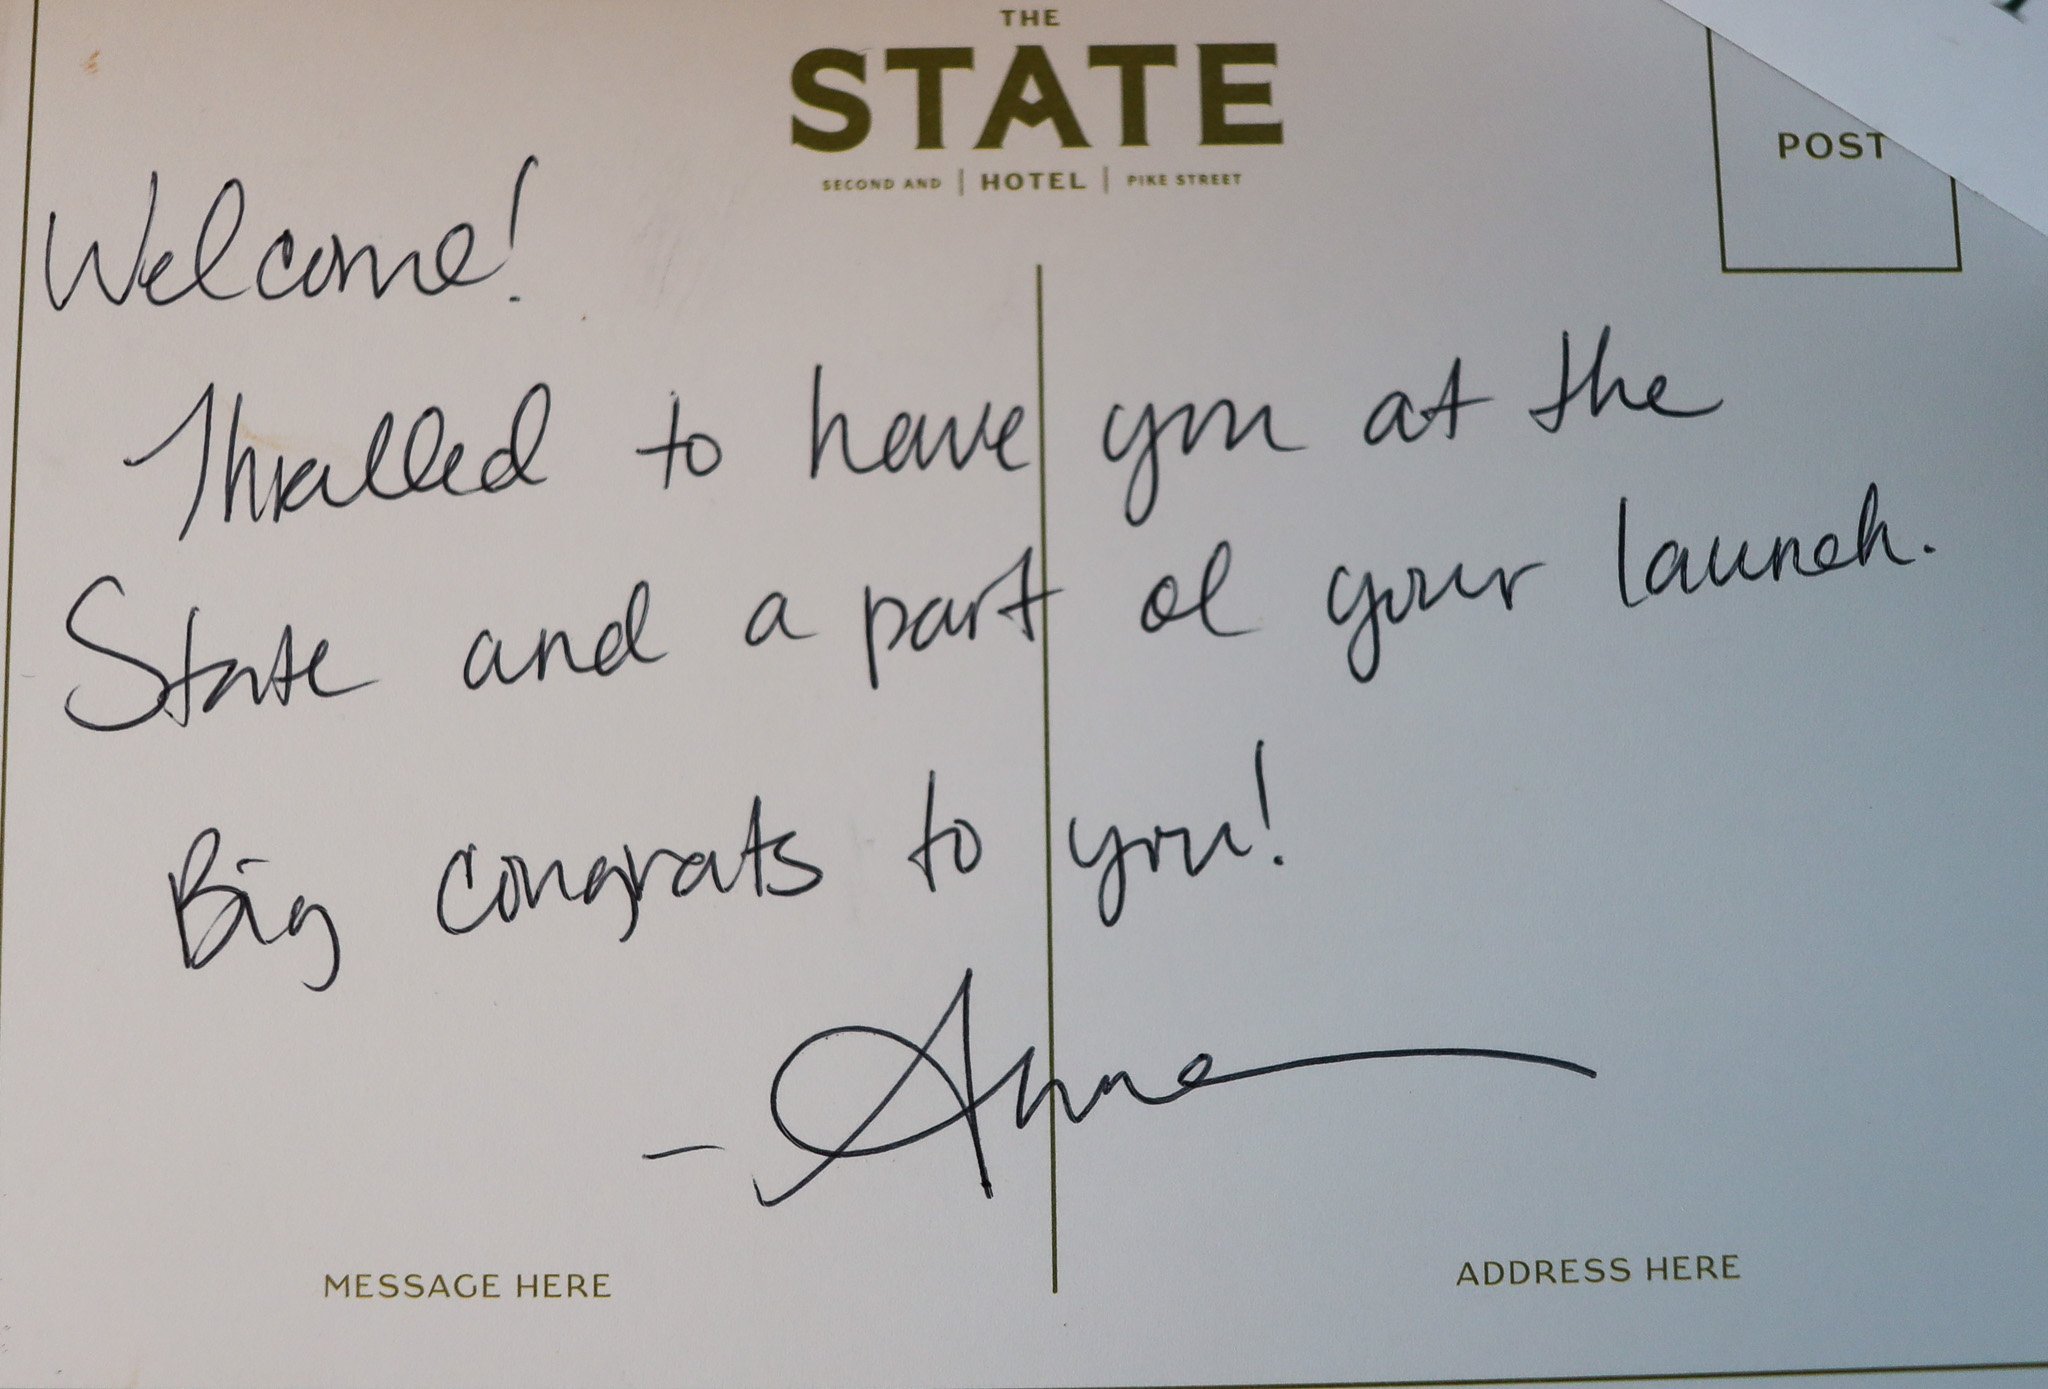 THE
STATE
SECOND AND | HOTEL | PIKE STREET
POST
Welcome!
Thralled to have you at the
State and a part of your launch.
Big congrats to you!
- Anne
MESSAGE HERE
ADDRESS HERE